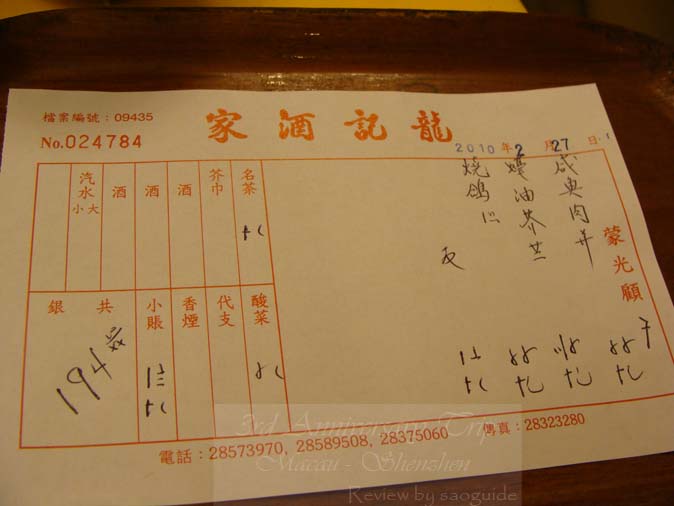 檔案編號：09435
No.024784
家酒記龍
2010 年 2 月 27 日
蒙光顧
咸魚肉并
蠔油芥兰
燒鴿
名茶
芥巾
酒
酒
酒
汽水
小 大
酸菜
代支
香煙
小賬
銀 共
194
電話：28573970, 28589508, 28375060 傳真：28323280
3rd Anniversary Trip
Macau - Shenzhen
Review by saoguide